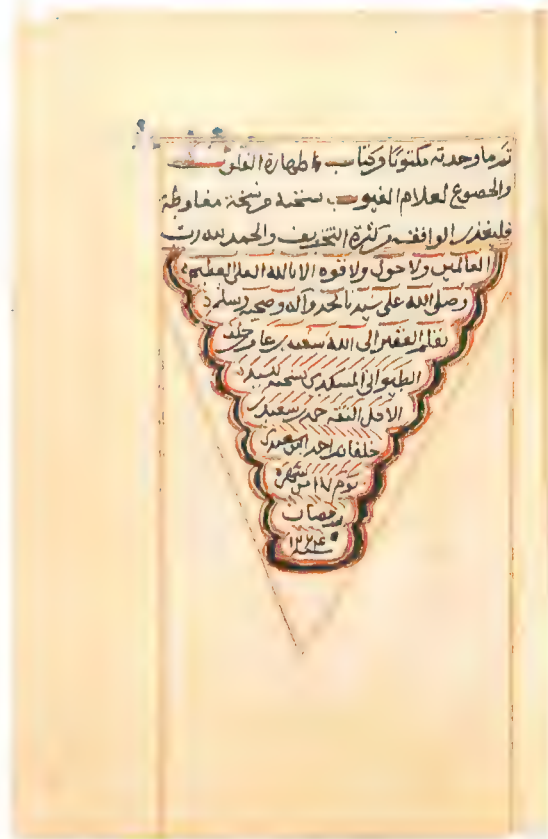 تم ما وجدته مكتوبا وكتاب طهارة القلوب
والخضوع لعلام الغيوب نسخته من نسخة مغلوطة
فليعذر الواقف من كثرة التحريف والحمد لله رب
العالمين ولا حول ولا قوة الا بالله العلي العظيم
وصلى الله على سيدنا محمد وآله وصحبه وسلم
بقلم الفقير الى الله سعيد بن عامر بن خلف
الطيواني المسكدي نسخته للشيخ
الاجل الثقة حمد بن سعيد بن
خلفان بن احمد البوسعيدي
يوم ١٧ من شهر
رمضان
سنة ١٢٢٤